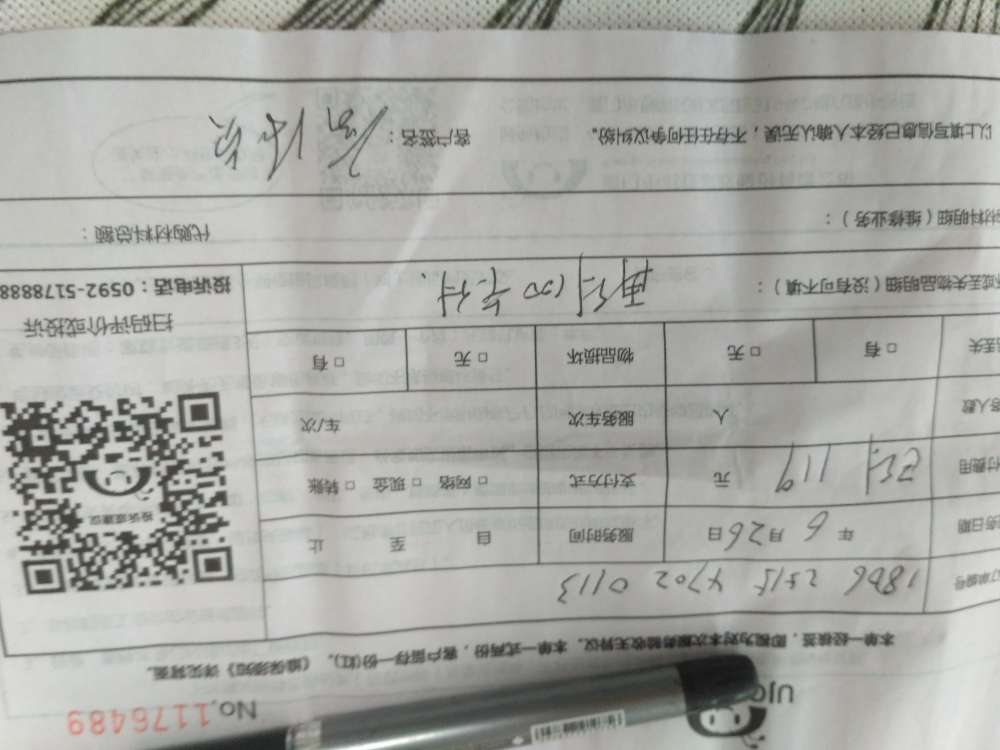 No.1176489
本单一经核签，即视为对本次服务验收无异议。本单一式两份，客户留存一份(红)。《追保须知》详见背面。
订单编号 1806 2515 4702 0113
务日期 年 6 月 26 日 服务时间 自 至 止
付费用 已付 119 元 支付方式 □ 网络 □ 现金 □ 转账
务人数 人 服务车次 车/次
丢失 □ 有 □ 无 物品损坏 □ 无 □ 有
坏或丢失物品明细（没有可不填）： 再付100
材料明细（维修业务）： 代购材料总额：
以上填写信息已经本人确认无误，不存在任何争议纠纷。 客户签名：
投诉或建议
扫码评价或投诉
投诉电话：0592-5178888